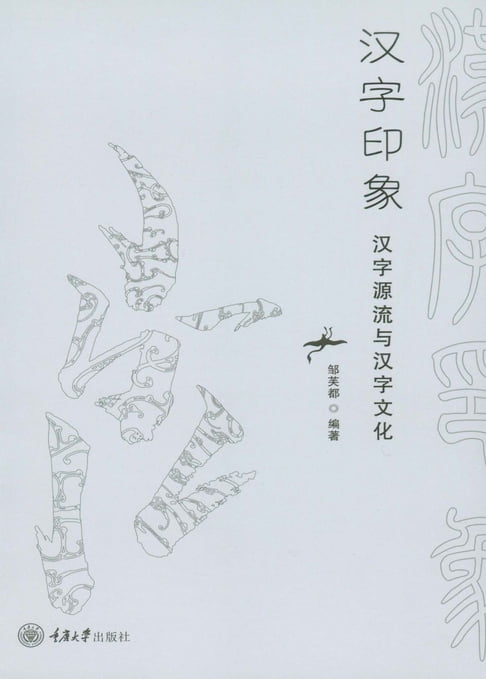 汉字印象
汉字印象
汉字源流与汉字文化
邹芙都◎编著
重庆大学出版社